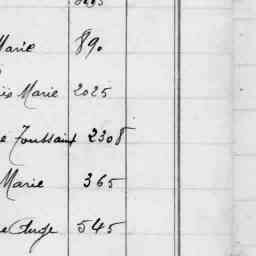 Marie 890
Marie 2025
Toussaint 2308
Marie 365
Ange 545